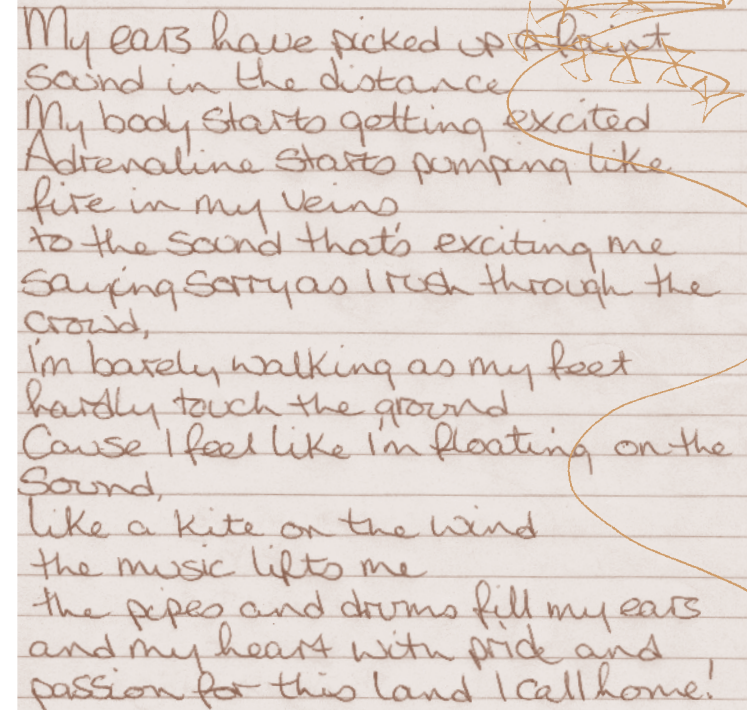 My ears have picked up a faint
sound in the distance
My body starts getting excited
Adrenaline starts pumping like
fire in my veins
to the sound that's exciting me
saying sorry as I rush through the
crowd,
i'm barely walking as my feet
hardly touch the ground
Cause I feel like i'm floating on the
Sound,
like a kite on the wind
the music lifts me
the pipes and drums fill my ears
and my heart with pride and
passion for this land I call home!